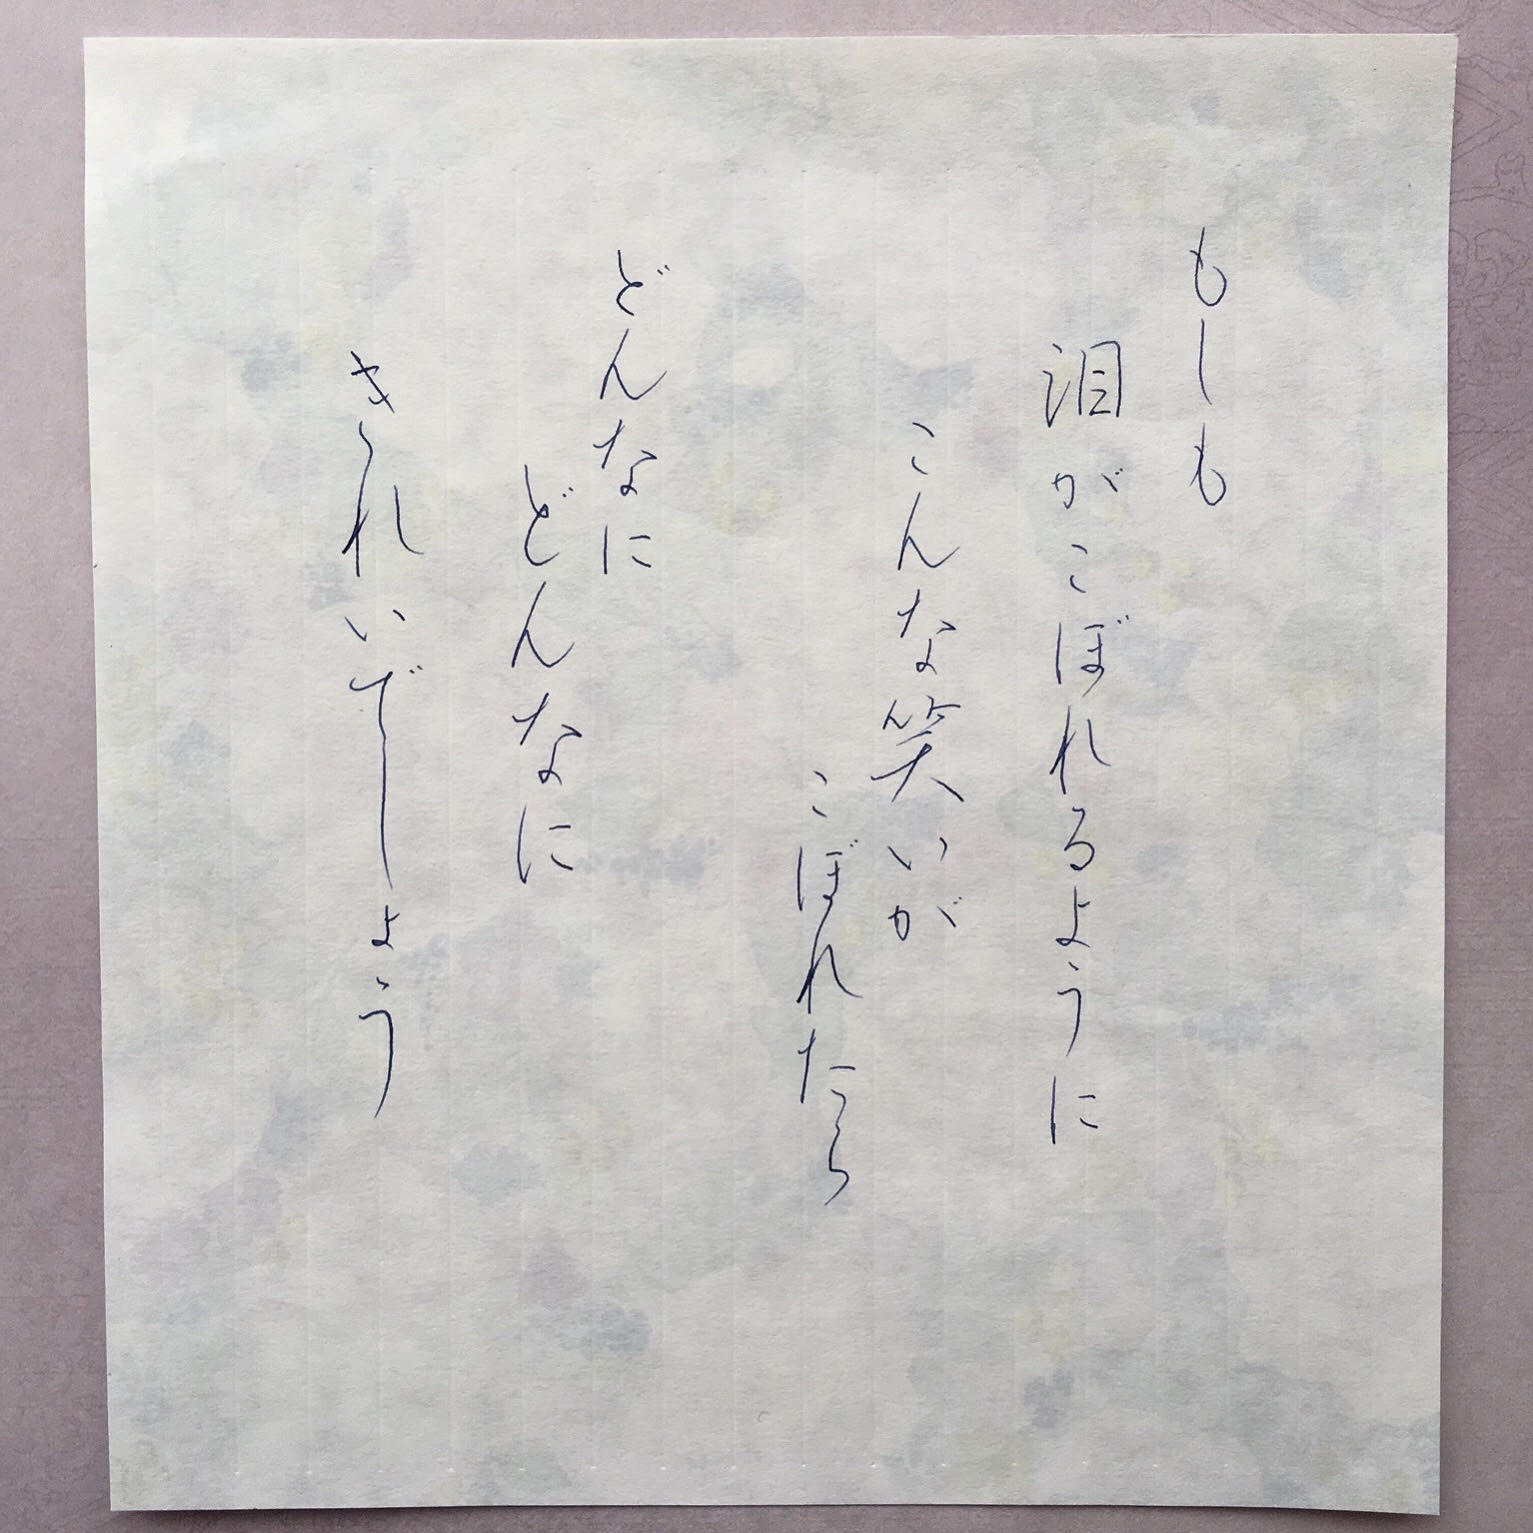 もしも
泪がこぼれるように
こんな笑いが
こぼれたら
どんなに
どんなに
きれいでしょう